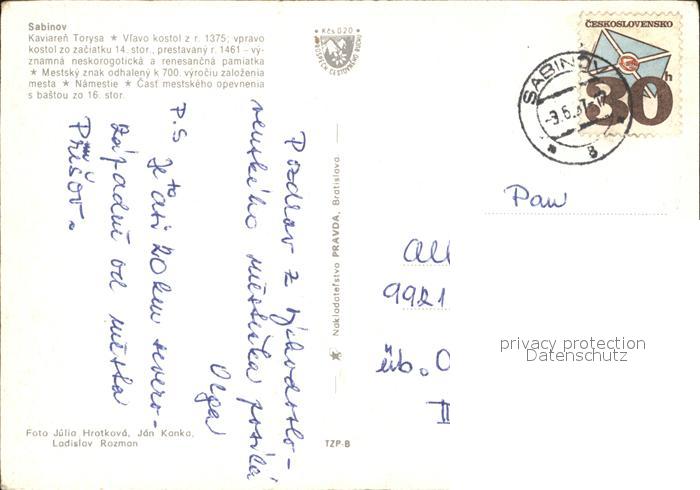 Sabinov
Kaviareň Torysa ★ Vľavo kostol z r. 1375; vpravo
kostol zo začiatku 14. stor., prestavaný r. 1461 – vý-
znamná neskorogotická a renesančná pamiatka
★ Mestský znak odhalený k 700. výročiu založenia
mesta ★ Námestie ★ Časť mestského opevnenia
s baštou zo 16. stor.
Kčs 0,20
PROSPECH CESTOVNÉHO RUCHU
ČESKOSLOVENSKO
30h
SABINOV
8
Pozdrav z východoslo-
venského městečka posílá
Olga
P.S Je to asi 20 km severo-
západně od města
Prešov.
Nakladateľstvo PRAVDA, Bratislava
Pan
All
9921
üb. O
privacy protection
Datenschutz
Foto Júlia Hrotková, Ján Kanka,
Ladislav Rozman
TZP-B